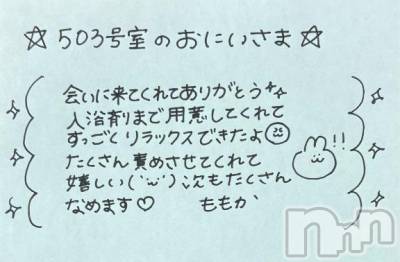 ☆503号室のおにいさま☆
会いに来てくれてありがとう
入浴剤まで用意してくれて
すっごくリラックスできたよ
たくさん責めさせてくれて
嬉しい(˙ω˙)次もたくさん
なめます♡ ももか
!!
nnn